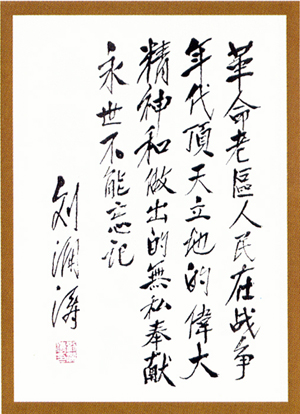 革命老區人民在战争
年代頂天立地的偉大
精神和做出的無私奉献
永世不能忘记
刘澜涛